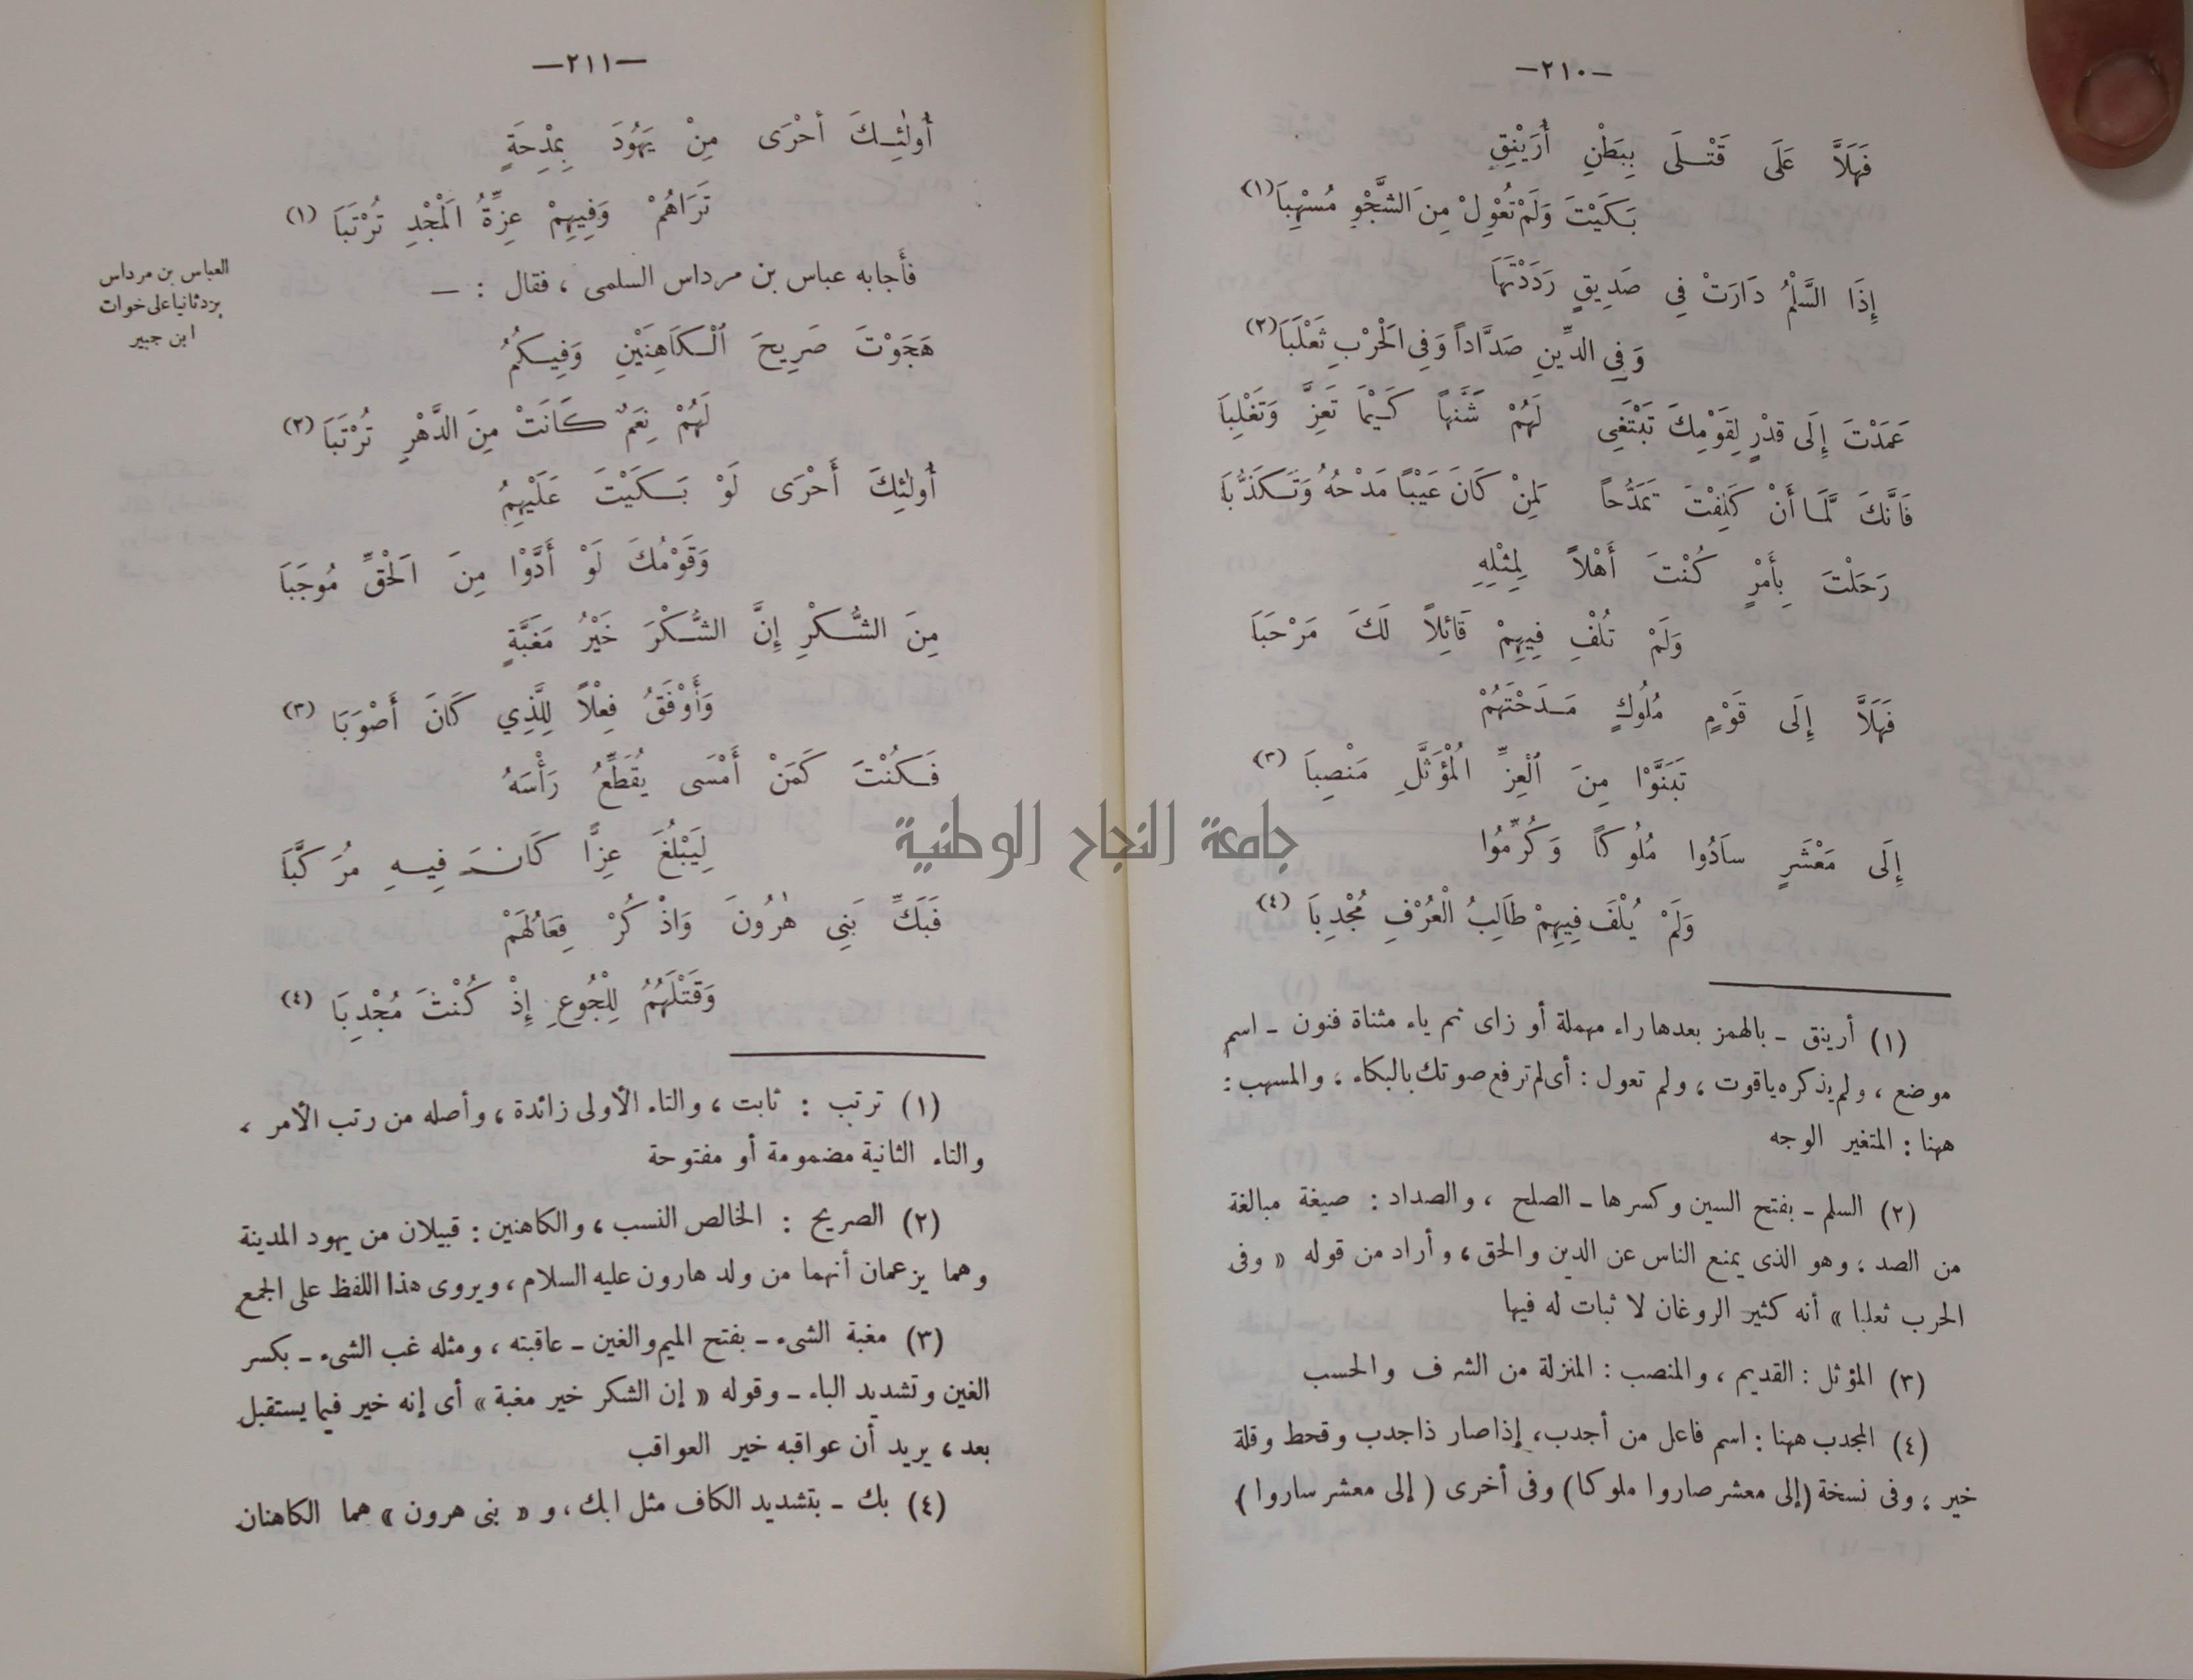 —٢١٠—
فَهَلاَّ عَلَى قَتْلَى بِبَطْنِ أُرَيْنِقِ
بَكَيْتَ وَلَمْ تُعْوِلْ مِنَ الشَّجْوِ مُسْهِبَا (١)
إِذَا السَّلْمُ دَارَتْ فِي صَدِيقٍ رَدَدْتَهَا
وَفِي الدِّينِ صَدَّاداً وَفِي الْحَرْبِ ثَعْلَبَا (٢)
عَمَدْتَ إِلَى قدْرٍ لِقَوْمِكَ تَبْتَغِى لَهُمْ شَّبَهاً كَيْمَا تَعِزَّ وَتَغْلِبَا
فَانَّكَ لَّمَا أَنْ كَلِفْتَ تَمَدُّحاً لِمَنْ كَانَ عَيْبًا مَدْحُهُ وَتَكَذُّبَا
رَحَلْتَ بِأَمْرٍ كُنْتَ أَهْلاً لِمِثْلِهِ
وَلَمْ تُلْفِ فِيهِمْ قَائِلاً لَكَ مَرْحَبَا
فَهَلاَّ إِلَى قَوْمٍ مُلُوكٍ مَدَحْتَهُمْ
تَبَنَّوْا مِنَ الْعِزِّ الْمُؤَثَّلِ مَنْصِبَا (٣)
إِلَى مَعْشَرٍ سَادُوا مُلُوكاً وَكُرِّمُوا
وَلَمْ يُلْفَ فِيهِمْ طَالِبُ الْعُرْفِ مُجْدِبَا (٤)
(١) أرينق – بالهمز بعدها راء مهملة أو زاى ثم ياء مثناة فنون – اسم
موضع ، ولم يذكره ياقوت ، ولم تعول : أى لم ترفع صوتك بالبكاء ، والمسهب :
ههنا : المتغير الوجه
(٢) السلم – بفتح السين وكسرها – الصلح ، والصداد : صيغة مبالغة
من الصد ؛ وهو الذى يمنع الناس عن الدين والحق ، وأراد من قوله « وفى
الحرب ثعلبا » أنه كثير الروغان لا ثبات له فيها
(٣) المؤثل : القديم ، والمنصب : المنزلة من الشرف والحسب
(٤) المجدب ههنا : اسم فاعل من أجدب ، إذا صار ذا جدب وقحط وقلة
خير ؛ وفى نسخة (إلى معشر صاروا ملوكا) وفى أخرى ( إلى معشر ساروا )
—٢١١—
أُولٰئِكَ أحْرَى مِنْ يَهُودَ بِمِدْحَةٍ
تَرَاهُمْ وَفِيهِمْ عِزَّةُ الْمَجْدِ تُرْتَبَا (١)
فأَجابه عباس بن مرداس السلمى ، فقال : —
العباس بن مرداس
يرد ثانيا على خوات
ابن جبير
هَجَوْتَ صَرِيحَ الْكَاهِنَيْنِ وَفِيكُمُ
لَهُمْ نِعَمٌ كَانَتْ مِنَ الدَّهْرِ تُرْتَبَا (٢)
أُولٰئِكَ أَحْرَى لَوْ بَكَيْتَ عَلَيْهِمُ
وَقَوْمُكَ لَوْ أَدَّوْا مِنَ الْحَقِّ مُوجَبَا
مِنَ الشُّكْرِ إِنَّ الشُّكْرَ خَيْرُ مَغَبَّةٍ
وَأَوْفَقُ فِعْلاً لِلَّذِي كَانَ أَصْوَبَا (٣)
فَكُنْتَ كَمَنْ أَمْسَى يُقَطِّعُ رَأْسَهُ
لِيَبْلُغَ عِزًّا كَانَ فِيهِ مُرَكَّبَا
فَبَكِّ بَنِى هٰرُونَ وَاذْكُرْ فِعَالَهُمْ
وَقَتْلَهُمُ لِلْجُوعِ إِذْ كُنْتَ مُجْدِبَا (٤)
(١) ترتب : ثابت ، والتاء الأولى زائدة ، وأصله من رتب الأمر ،
والتاء الثانية مضمومة أو مفتوحة
(٢) الصريح : الخالص النسب ، والكاهنين : قبيلان من يهود المدينة
وهما يزعمان أنهما من ولد هارون عليه السلام ، ويروى هذا اللفظ على الجمع
(٣) مغبة الشىء – بفتح الميم والغين – عاقبته ، ومثله غب الشىء – بكسر
الغين وتشديد الباء – وقوله « إن الشكر خير مغبة » أى إنه خير فيما يستقبل
بعد ، يريد أن عواقبه خير العواقب
(٤) بك – بتشديد الكاف مثل ابك ، و « بنى هرون » هما الكاهنان
جامعة النجاح الوطنية